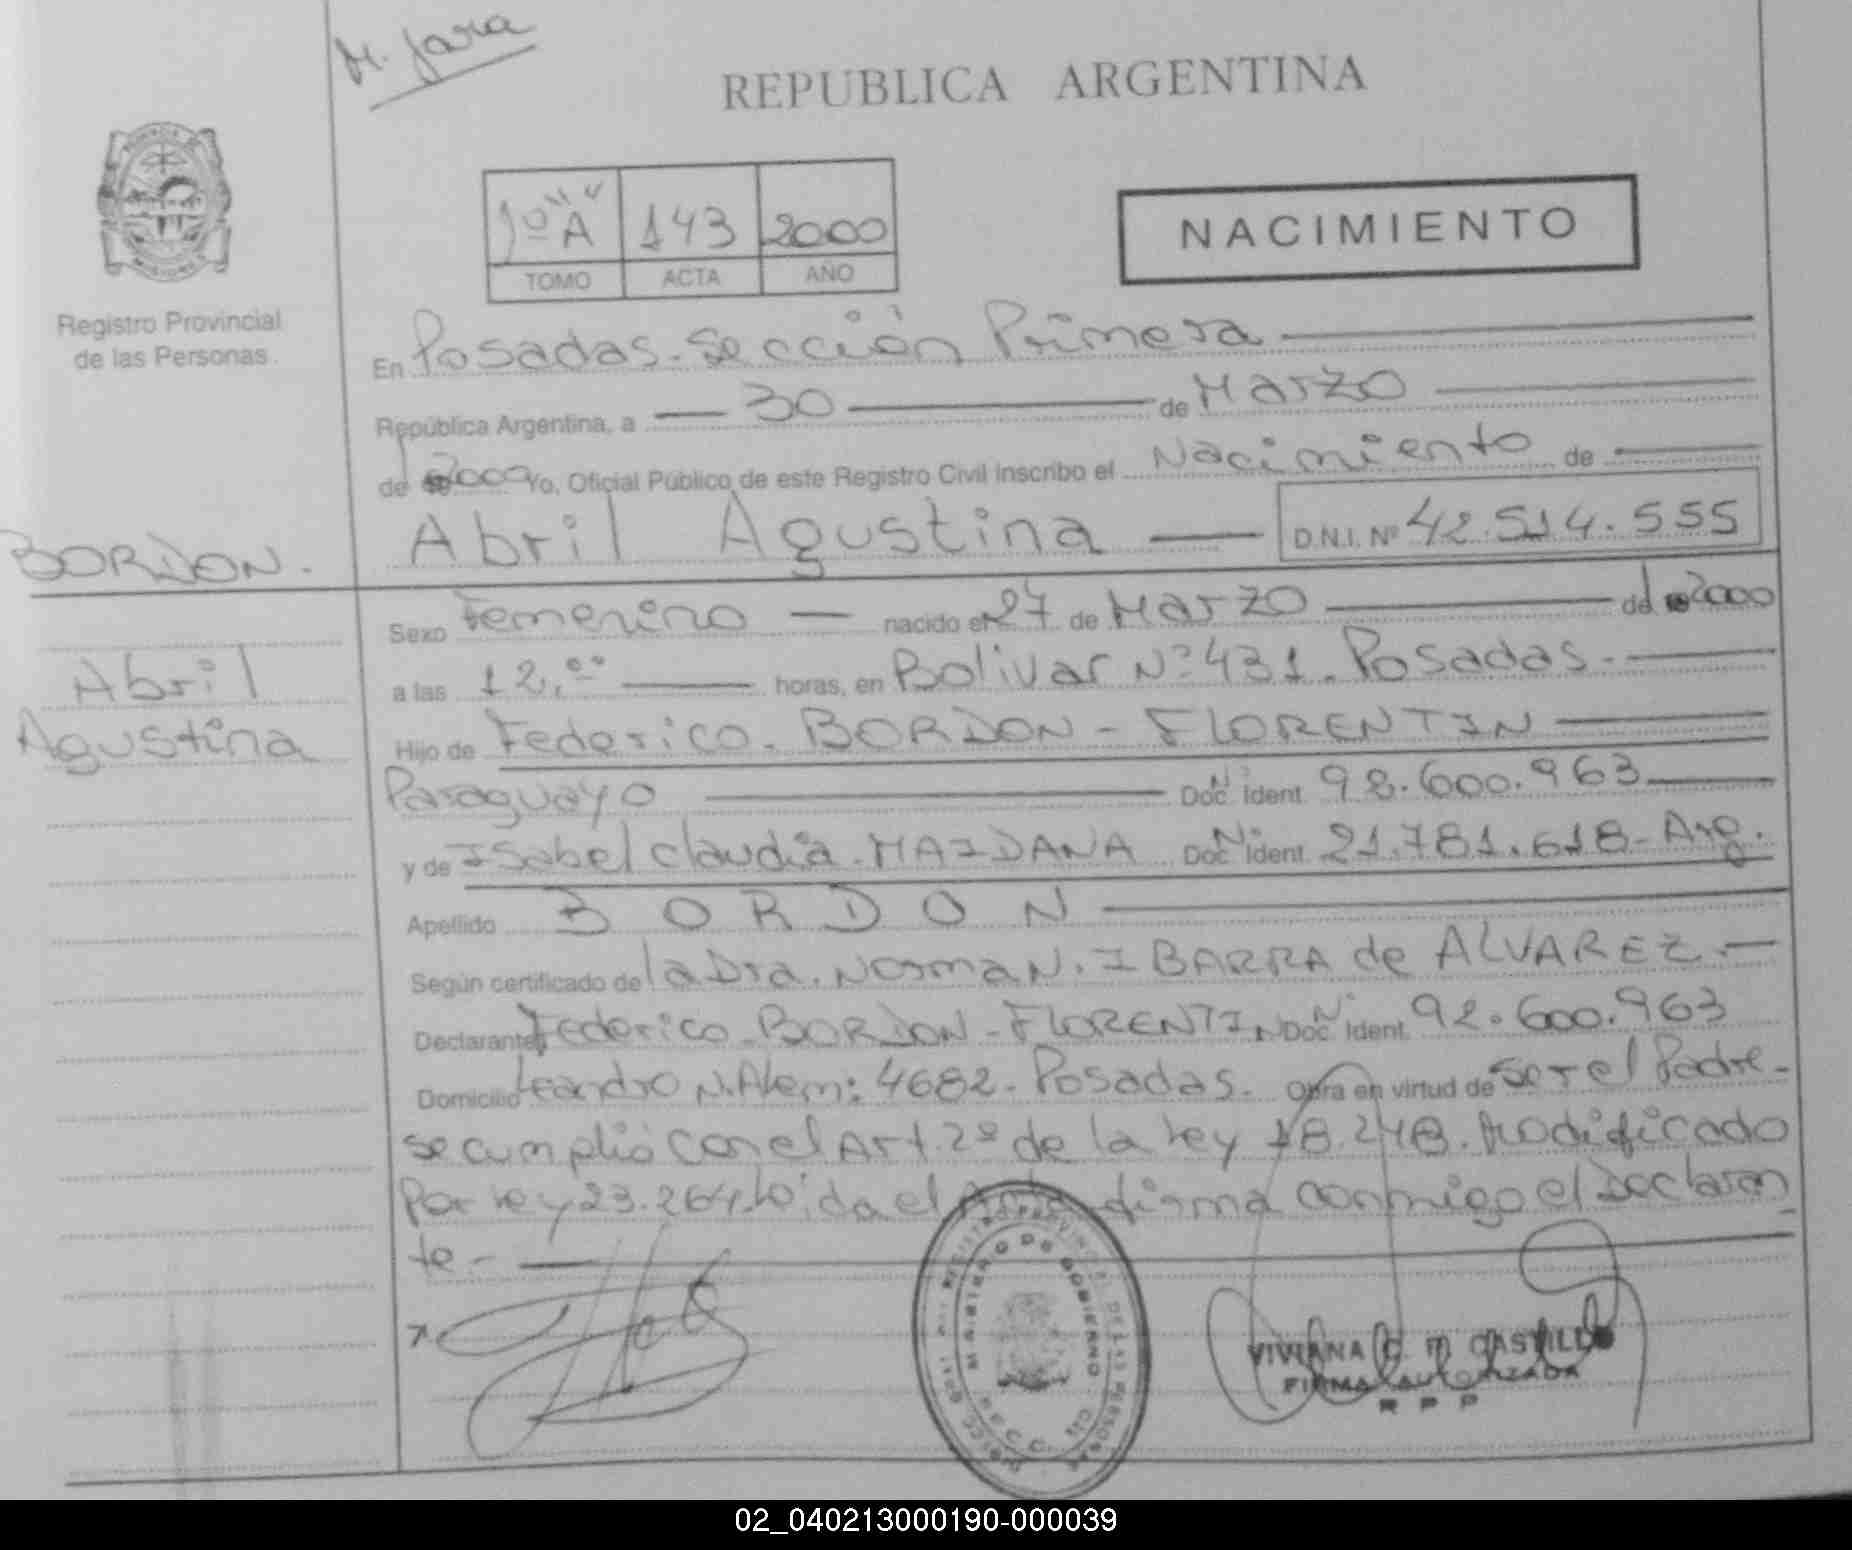 M. Jara
REPUBLICA ARGENTINA
1º "A" 143 2000
TOMO ACTA AÑO
NACIMIENTO
Registro Provincial
de las Personas.
En Posadas. Sección Primera
República Argentina, a 30 de Marzo
de 2000 Yo, Oficial Público de este Registro Civil inscribo el Nacimiento de
Abril Agustina D.N.I. Nº 42.514.555
BORDON.
Abril
Agustina
Sexo Femenino nacido el 27 de Marzo de 2000
a las 12,00 horas, en Bolivar Nº 431. Posadas.
Hijo de Federico. BORDON - FLORENTIN
Paraguayo Doc. Nº Ident. 92.600.963
y de Isabel Claudia. MAIDANA Doc. Nº Ident. 21.781.618 - Arg.
Apellido BORDON
Según certificado de la Dra. Norma N. IBARRA de ALVAREZ.
Declarante Federico. BORDON - FLORENTIN Doc. Nº Ident. 92.600.963
Domicilio Leandro N. Alem: 4682 - Posadas. Obra en virtud de ser el Padre -
se cumplió con el Art. 2º de la Ley 18.248. Modificado
Por Ley 23.264. Leída el Acta firma conmigo el Declaran
te -
REGISTRO PROVINCIAL DE LAS PERSONAS
MINISTERIO DE GOBIERNO
VIVIANA C. M. CASTILLO
FIRMA AUTORIZADA
R P P
02_040213000190-000039